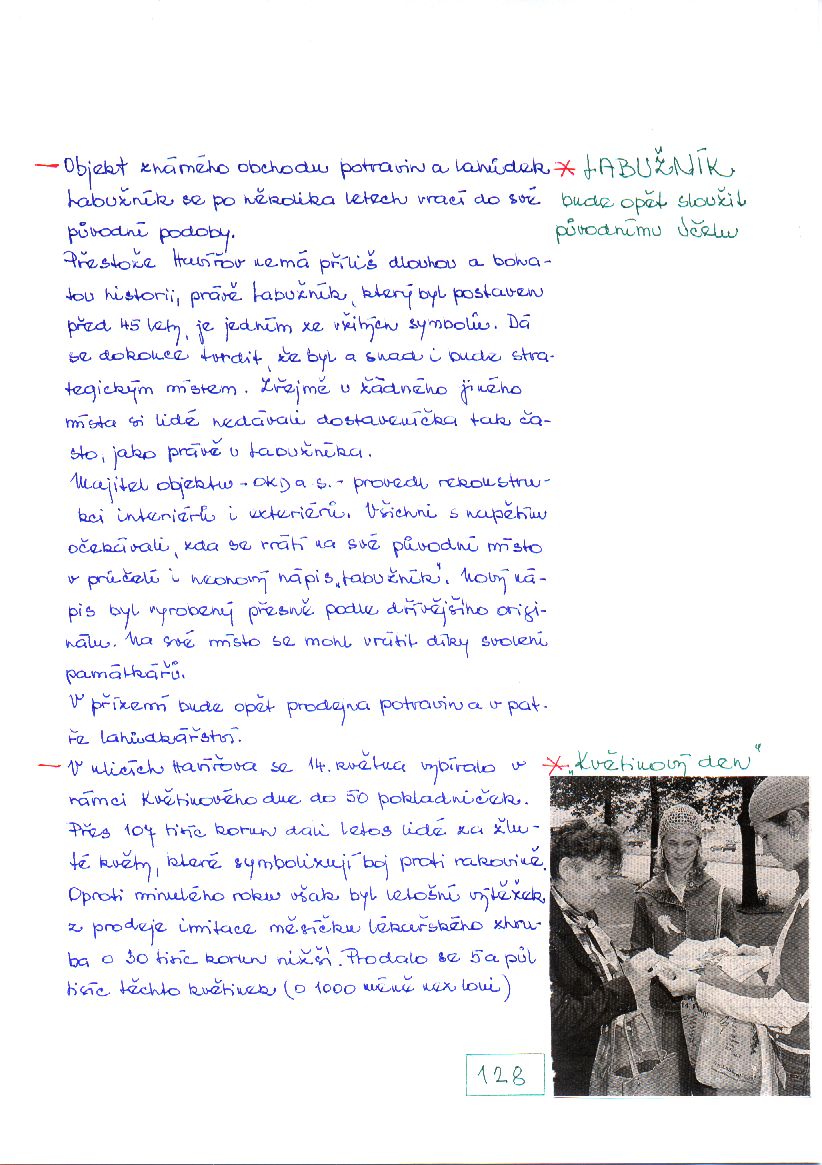 — Objekt známého obchodu potravin a lahůdek
Labužník se po několika letech vrací do své
původní podoby.
Přestože Havířov nemá příliš dlouhou a boha-
tou historii, právě Labužník, který byl postaven
před 45 lety, je jedním ze vžitých symbolů. Dá
se dokonce tvrdit, že byl a snad i bude stra-
tegickým místem. Zřejmě u žádného jiného
místa si lidé nedávali dostaveníčka tak ča-
sto, jako právě u Labužníka.
Majitel objektu - OKD a.s. - provedl rekonstru-
kci interiérů i exteriérů. Všichni s napětím
očekávali, zda se vrátí na své původní místo
v průčelí i neonový nápis „Labužník". Nový ná-
pis byl vyrobený přesně podle dřívějšího origi-
nálu. Na své místo se mohl vrátit díky svolení
památkářů.
V přízemí bude opět prodejna potravin a v pat-
ře lahůdkářství.
— V ulicích Havířova se 14. května vybíralo v
rámci Květinového dne do 50 pokladniček.
Přes 107 tisíc korun dali letos lidé za žlu-
té květy, které symbolizují boj proti rakovině.
Oproti minulého roku však byl letošní výtěžek
z prodeje imitace měsíčku lékařského zhru-
ba o 30 tisíc korun nižší. Prodalo se 5 a půl
tisíc těchto květinek (o 1000 méně nex loni)
* LABUŽNÍK
bude opět sloužit
původnímu účelu
* „Květinový den"
128